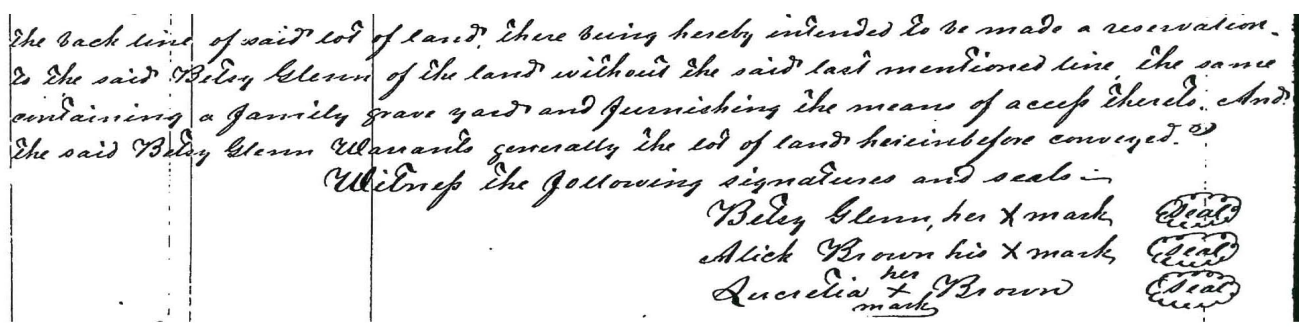 the back line of said lot of land, there being hereby intended to be made a reservation.
to the said Betsy Glenn of the land without the said last mentioned line, the same
containing a family grave yard and furnishing the means of access thereto. And
the said Betsy Glenn Warrants generally the lot of land hereinbefore conveyed.
Witness the following signatures and seals
Betsy Glenn, her X mark (Seal)
Alick Brown his X mark (Seal)
her
Lucretia X Brown (Seal)
mark